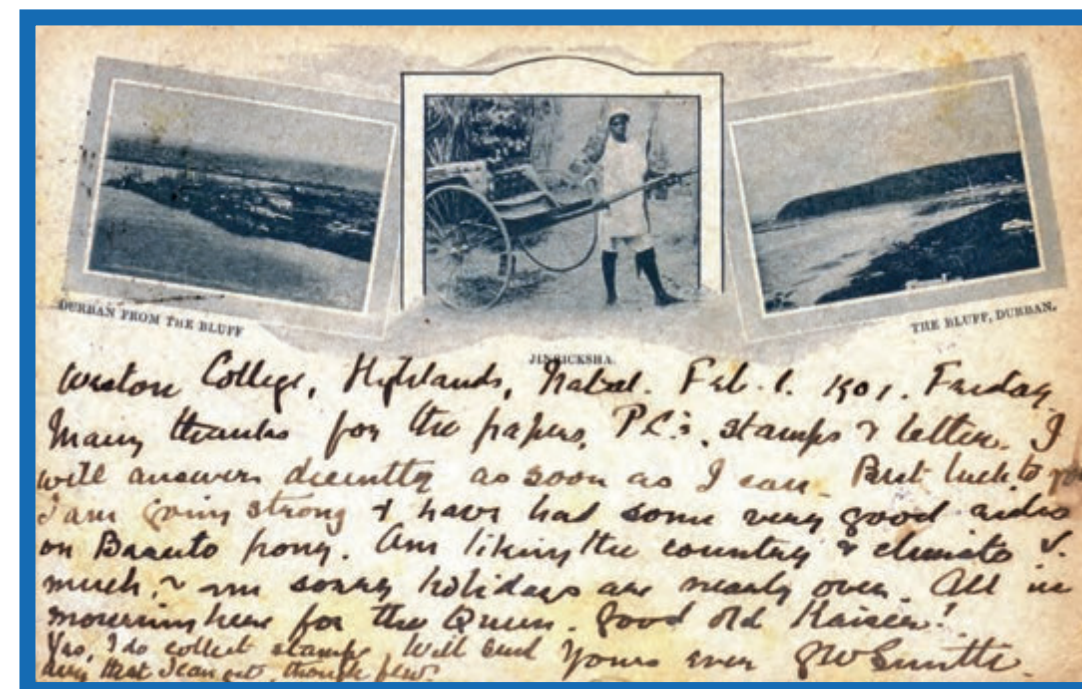 DURBAN FROM THE BLUFF
JINRICKSHA.
THE BLUFF, DURBAN.
Weston College, Highlands, Natal. Feb. 1. 1901. Friday
Many thanks for the papers, P.C.s, stamps & letter. I
will answer directly as soon as I can. Best luck to you
I am going strong & have had some very good rides
on Basuto pony. Am liking the country & climate v.
much, & am sorry holidays are nearly over. All in
mourning here for the Queen. Good old Kaiser!
Yes, I do collect stamps. Will send Yours ever
any that I can get, though few.